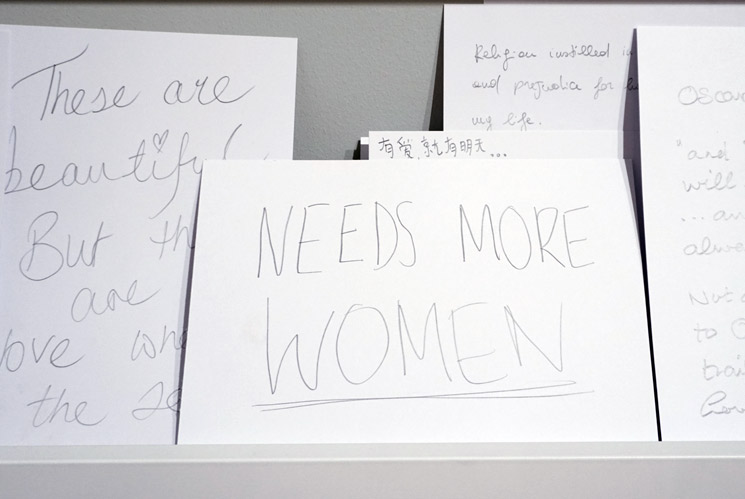 These are
beautiful
But
are
love
the
Religion instilled
and prejudice for
my life.
有愛,就有明天...
NEEDS MORE
WOMEN
"and
will
...
to